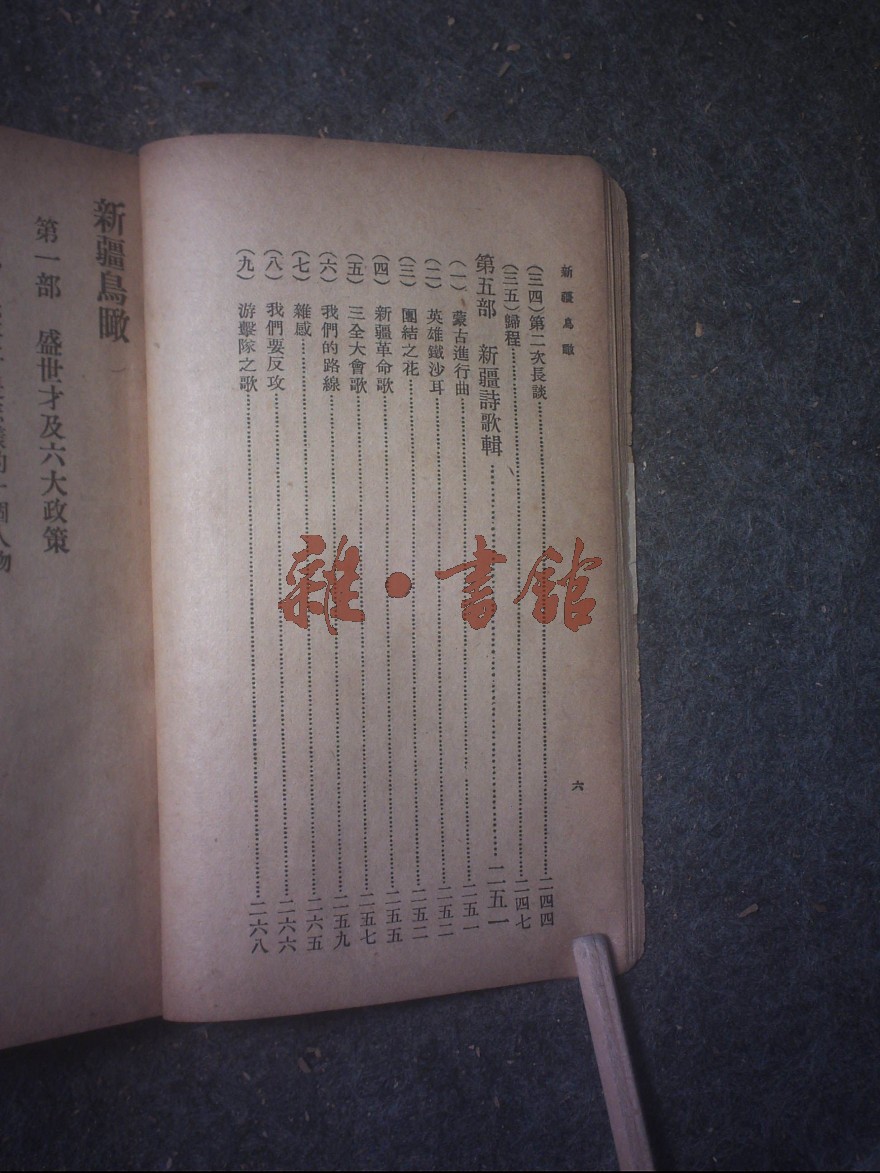 新疆鳥瞰
(三四)第二次長談……二四四
(三五)歸程……二四七
第五部 新疆詩歌輯……二五一
(一) 蒙古進行曲……二五一
(二) 英雄鐵沙耳……二五二
(三) 團結之花……二五二
(四) 新疆革命歌……二五五
(五) 三全大會歌……二五七
(六) 我們的路線……二五九
(七) 雜感……二六五
(八) 我們要反攻……二六六
(九) 游擊隊之歌……二六八
六
新疆鳥瞰
第一部 盛世才及六大政策
的一個人物
雜·書館